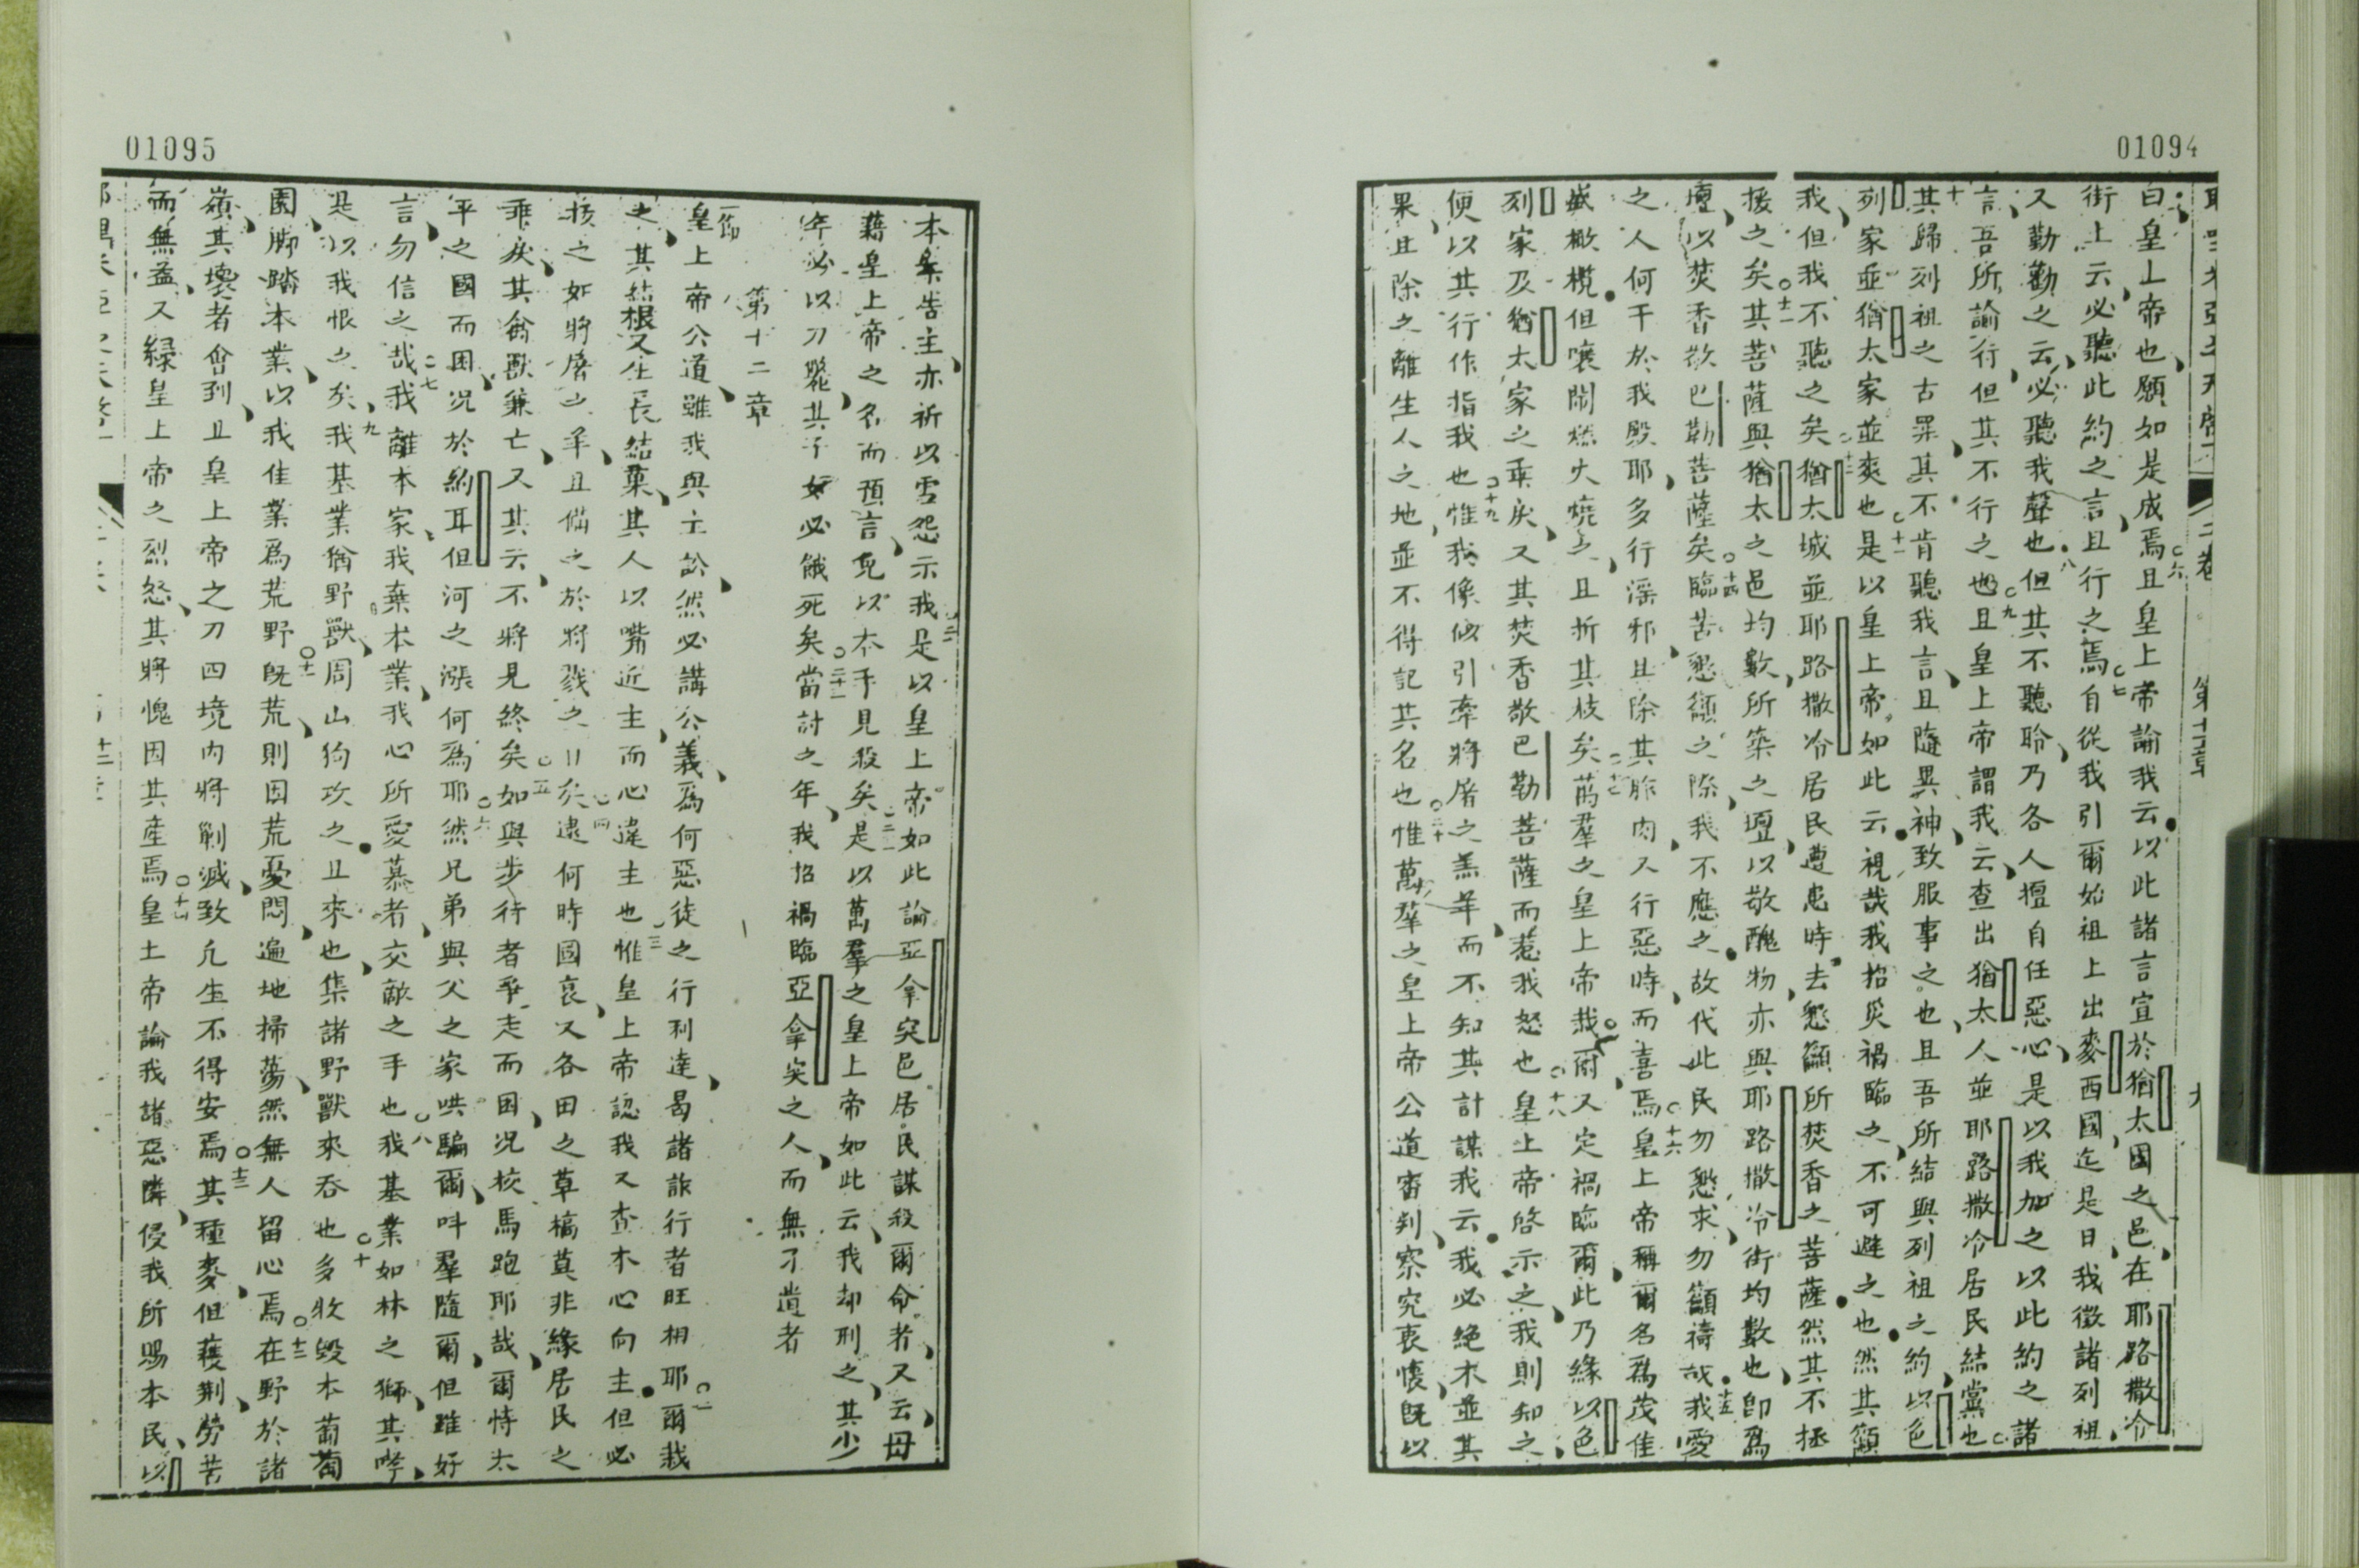 01094
二卷 第十一章
曰皇上帝也願如是成焉且皇上帝諭我云以此諸言宣於猶太國之邑在耶路撒冷
街上云必聽此約之言且行之焉自從我引爾始祖上出麥西國迄是日我徵諸列祖
又勤勸之云必聽我聲也但其不聽聆乃各人擅自任惡心是以我加之以此約之諸
言吾所諭行但其不行之也且皇上帝謂我云查出猶太人並耶路撒冷居民結黨也
其歸列祖之古罪其不肯聽我言且隨異神致服事之也且吾所結與列祖之約以色
列家並猶太家並爽也是以皇上帝如此云視哉我招災禍臨之不可避之也然其籲
我但我不聽之矣猶太城並耶路撒冷居民遭患時去懇籲所焚香之菩薩然其不拯
援之矣其菩薩與猶太之邑均數所築之壇以敬醜物亦與耶路撒冷街均數也即爲
壇以焚香敬巴勒菩薩矣臨苦懇籲之際我不應之故代此民勿懇求勿籲禱哉我愛
之人何干於我殿耶多行淫邪且除其胙肉又行惡時而喜焉皇上帝稱爾名爲茂佳
盛橄欖但嚷鬧燃火燒之且折其枝矣萬羣之皇上帝哉爾又定禍臨爾此乃緣以色
列家及猶太家之乖戾又其焚香敬巴勒菩薩而惹我怒也皇上帝啓示之我則知之
便以其行作指我也惟我像似引牽將屠之羔羊而不知其計謀我云我必絕木並其
果且除之離生人之地並不得記其名也惟萬羣之皇上帝公道審判察究衷懷既以
01095
本案告主亦祈以雪怨示我是以皇上帝如此論亞拿突邑居民謀殺爾命者又云毋
藉皇上帝之名而預言免以本手見殺矣是以萬羣之皇上帝如此云我却刑之其少
年必以刀斃其子女必餓死矣當討之年我招禍臨亞拿突之人而無孑遺者
第十二章
皇上帝公道雖我與主訟然必講公義爲何惡徒之行利達曷諸詐行者旺相耶爾栽
之其結根又生長結菓其人以嘴近主而心違主也惟皇上帝認我又查本心向主但必
拔之如將屠之羊且備之於將戮之日矣逮何時國哀又各田之草槁莫非緣居民之
乖戾其禽獸兼亡又其云不將見終矣如與步行者爭走而困況核馬跑耶哉爾恃太
平之國而困況於約耳但河之漲何爲耶然兄弟與父之家哄騙爾呌羣隨爾但雖好
言勿信之哉我離本家我棄本業我心所愛慕者交敵之手也我基業如林之獅其哮
是以我恨之矣我基業猶野獸周山狗攻之且來也集諸野獸來吞也多牧毀本葡萄
園脚踏本業以我佳業爲荒野旣荒則因荒憂悶遍地掃蕩然無人留心焉在野於諸
嶺其壞者會到且皇上帝之刀四境內將剿滅致凡生不得安焉其種麥但穫荆勞苦
而無益又緣皇上帝之烈怒其將愧因其產焉皇上帝論我諸惡隣侵我所賜本民以